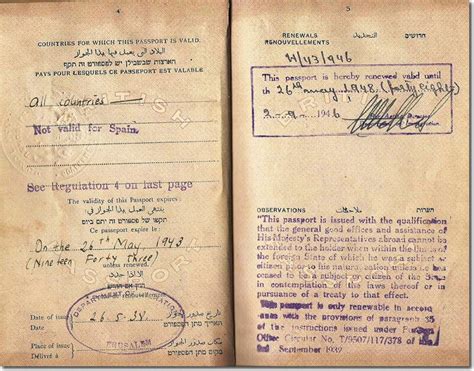 4
COUNTRIES FOR WHICH THIS PASSPORT IS VALID.
البلاد التي يعمل فيها بهذا الجواز
הארצות שבשבילן יש לפספורט זה תקף
PAYS POUR LESQUELS CE PASSEPORT EST VALABLE
all countries
Not valid for Spain.
See Regulation 4 on last page
The validity of this Passport expires:
ينتهي العمل بهذا الجواز في
תקפו של פספורט זה פוקע ביום
Ce passeport expire:
On the 26th May, 1943
(Nineteen Forty three)
unless renewed.
DEPARTMENT OF
JERUSALEM
Date of issue
Délivré le
26.5.38
Place of issue
Délivré à
5
RENEWALS
RENOUVELLEMENTS
التجديدات
חידושים
H/43/946
This passport is hereby renewed valid until
the 26th may, 1948, (forty eight)
1946
OBSERVATIONS
ملاحظات
הערות
"This passport is issued with the qualification
that the general good offices and assistance of
His Majesty's Representatives abroad cannot be
extended to the holder when within the limits of the
foreign State of which he was a subject or
citizen prior to his naturalization unless he has
ceased to be a subject or citizen of the State
in contemplation of the laws thereof or in
pursuance of a treaty to that effect.
This passport is only renewable in accord
ance with the provisions of paragraph 35
of the instructions issued under Foreign
Office Circular No. T/9507/117/378 of the
September 1932